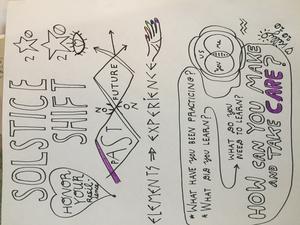 20 20
SOLSTICE
SHIFT
HONOR
YOUR
Resil-
ience
PAST
NOW
FUTURE
ELEMENTS → EXPERIENCE
* WHAT HAVE YOU BEEN PRACTICING?
* WHAT DID YOU LEARN?
→ WHAT DO YOU
NEED TO LEARN?
US
me
YOU
HOW CAN YOU MAKE
AND TAKE CARE?